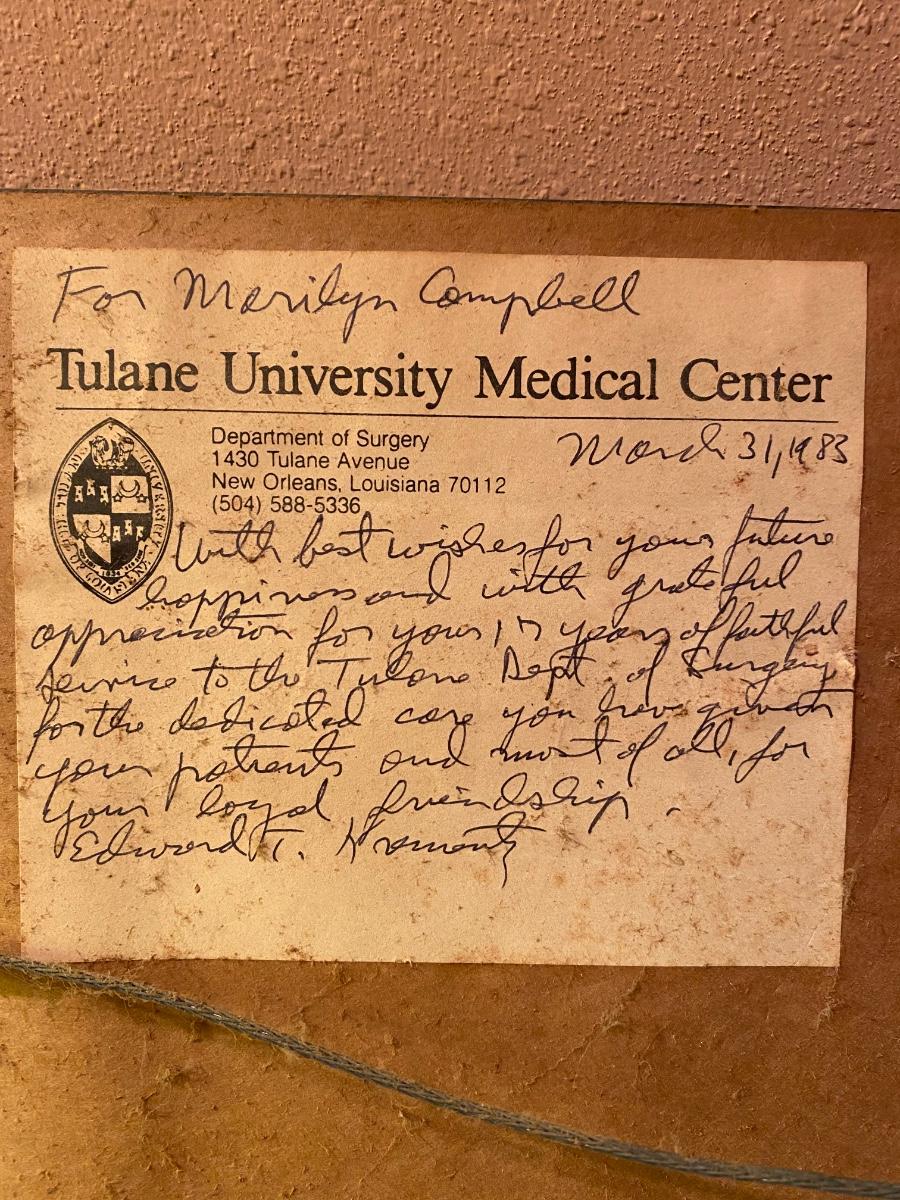 For Marilyn Campbell
Tulane University Medical Center
Department of Surgery
1430 Tulane Avenue
New Orleans, Louisiana 70112
(504) 588-5336
March 31, 1983
With best wishes for your future
happiness and with grateful
appreciation for your 17 years of faithful
service to the Tulane Dept. of Surgery
for the dedicated care you have given
your patients and most of all, for
your loyal friendship.
Edward T. Krementz